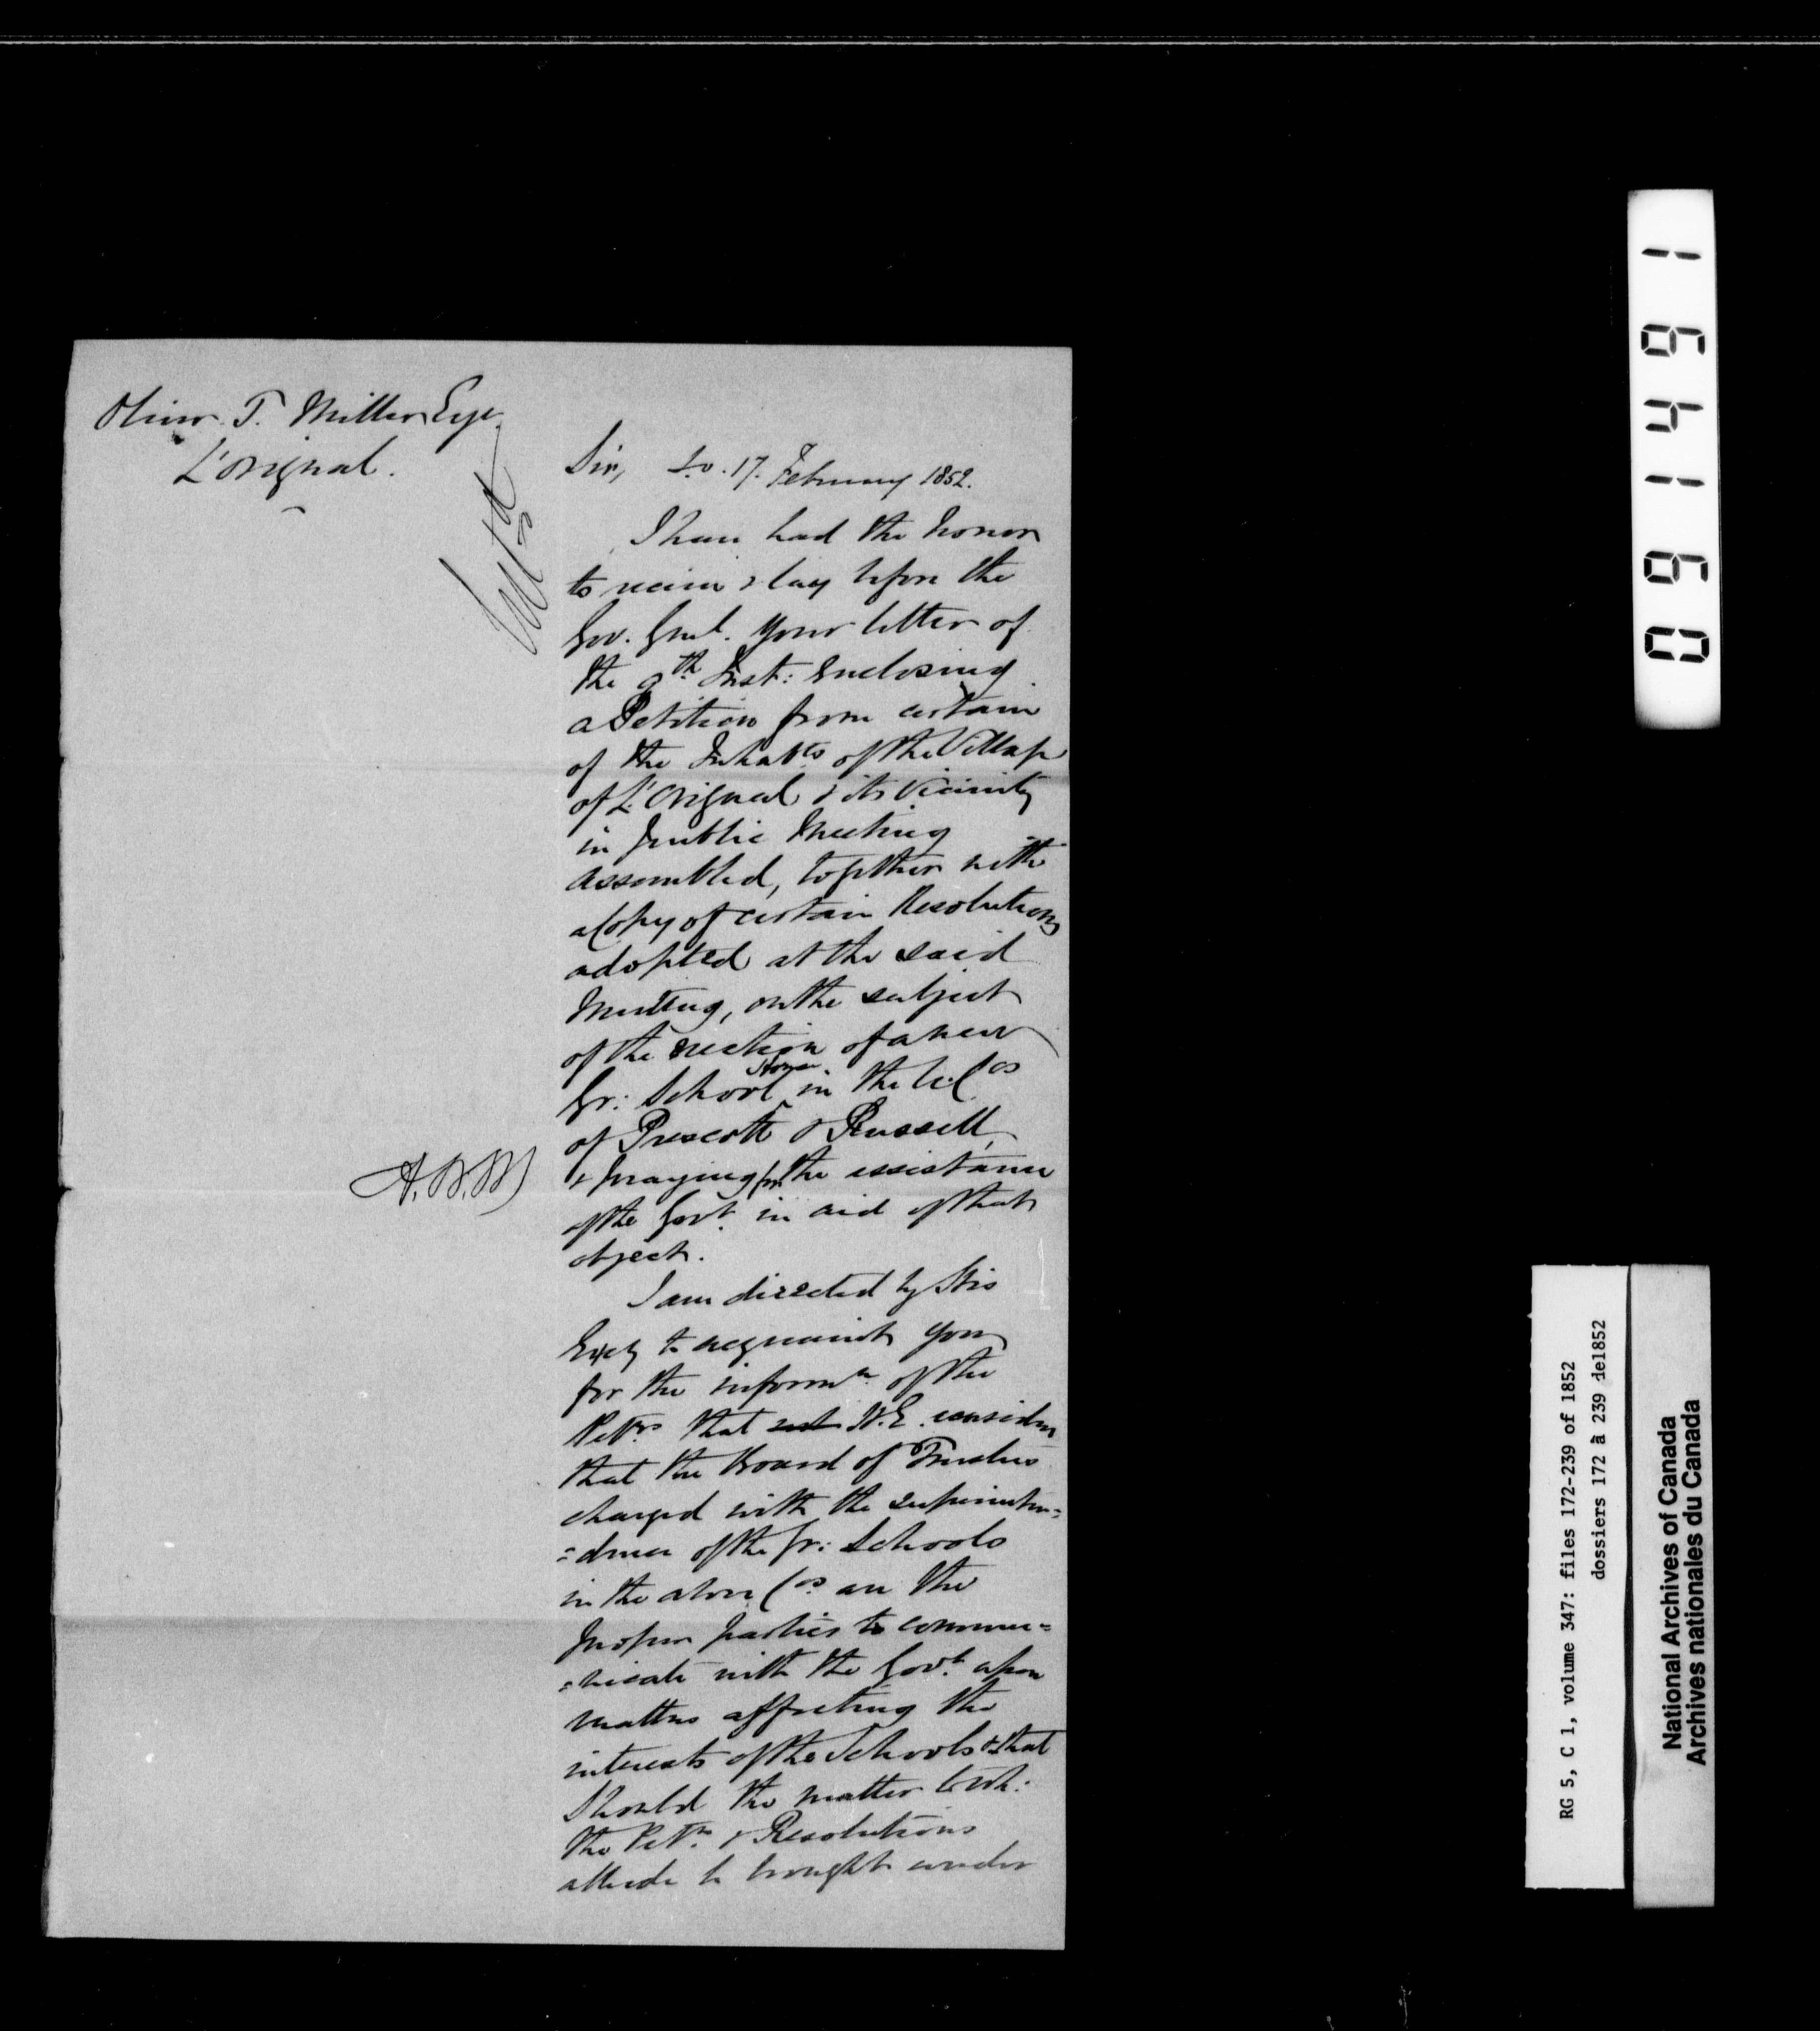 Oliver T. Miller Esqr.
L'Orignal.
Sir, S.O. 17. February 1852.
I have had the honor
to receive & lay before the
Gov. Genl. your letter of
the 9th Inst: enclosing
a Petition from certain
of the Inhabts of the Village
of L'Orignal & its Vicinity
in public Meeting
assembled, together with
a Copy of certain Resolutions
adopted at the said
Meeting, on the subject
of the erection of a new
Gr: School House in the U. Cos
of Prescott & Russell,
& praying for the assistance
of the Govt. in aid of that
object.
I am directed by His
Excy to acquaint you
for the informn. of the
Petrs that H.E. considers
that the Board of Trustees
charged with the superinten=
=dence of the Gr: Schools
in the above Cos. are the
proper parties to commu=
=nicate with the Govt. upon
matters affecting the
interests of the Schools & that
should the matter to wh:
the Petn. & Resolutions
allude be brought under
A.N.M
1 6 4 1 6 0
RG 5, C 1, volume 347: files 172-239 of 1852
dossiers 172 à 239 de1852
National Archives of Canada
Archives nationales du Canada